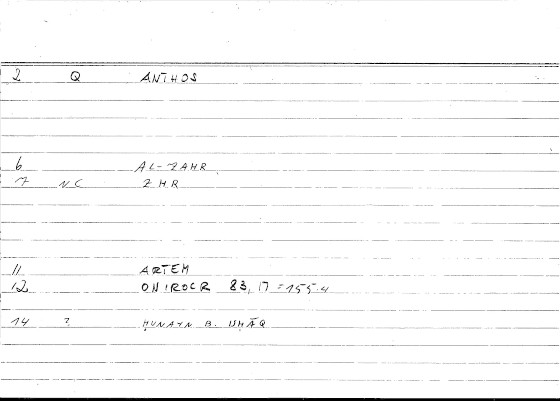 2 Q ANTHOS
6 AL-ZAHR
7 N.C ZHR
11 ARTEM
12 ONIROCR 83, 17 = 155.4
14 ? ḤUNAYN B. ISḤĀQ